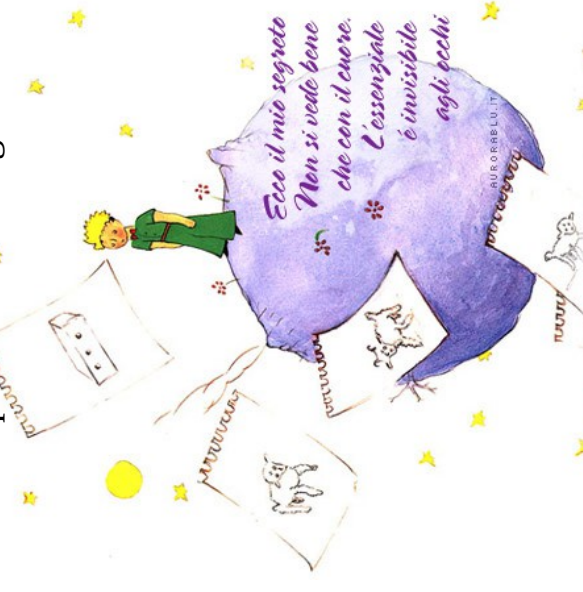 Ecco il mio segreto
Non si vede bene
che con il cuore.
L'essenziale
é invisibile
agli occhi
AURORABLU.IT